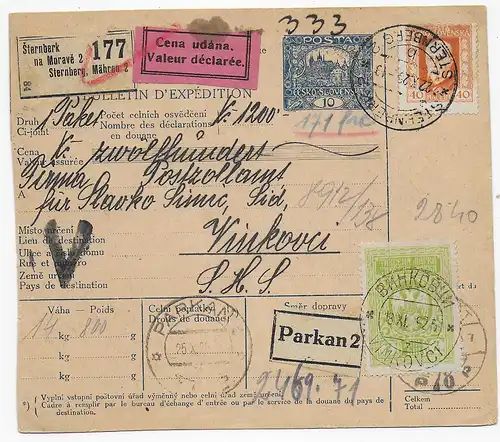 333
Šternberk
na Moravě 2
Sternberg, Mähren 2
177
Cena udána.
Valeur déclarée.
POSTA
ČESKO-SLOVENSKÁ
10
40 40
STERNBERG
BULLETIN D'EXPÉDITION
Druh
Ci-joint
Paket
Počet celních osvědčení
Nombre des déclarations
en douane
K 1200-
171
Cena
Valeur assurée
K. zwölfhundert
Firma Postzollamt
A
für Slavko Simić, Sid,
8912/138
2840
Místo určení
Lieu de destination
Vinkovci
Rue et numéro
Země určení
Pays de destination
S. H. S.
V
Váha - Poids
Celní poplatky
Droits de douane
Směr dopravy
14 kg 800 g
kg g
kg g
PARKAN
25.X.21
Parkan 2
VINKOVCI
2469.71
*) Vyplní vstupní poštovní úřad výměnný nebo celní úřad země určení.
Cadre à remplir par le bureau d'échange d'entrée ou par le service de la douane du pays de
destination.
Celkem
Total